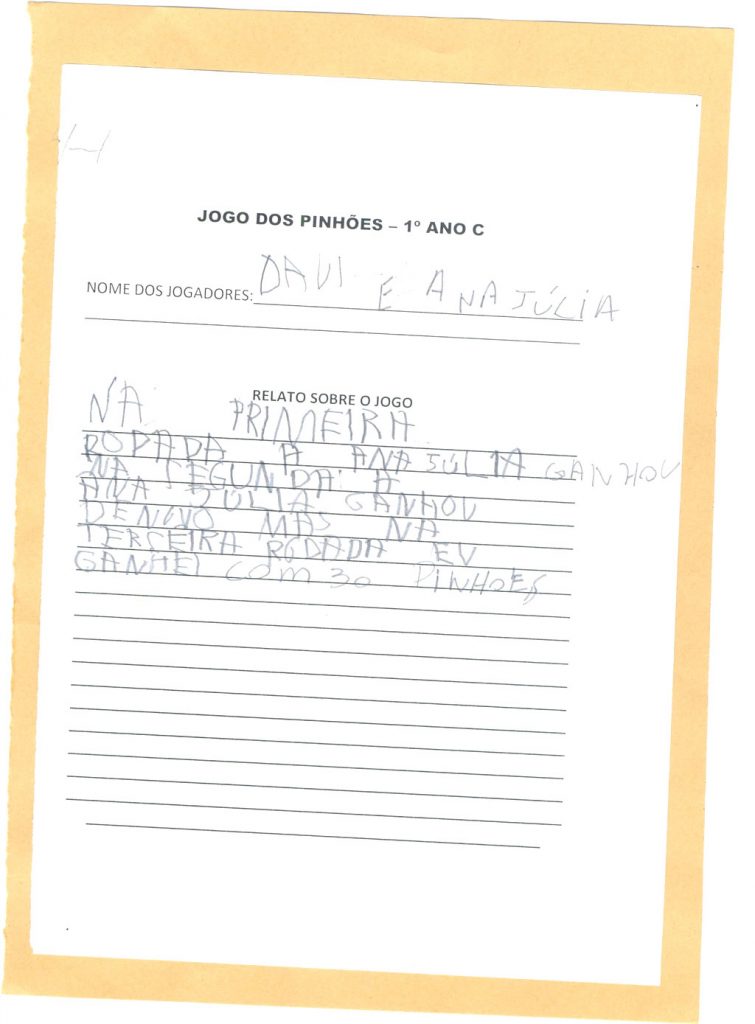 JOGO DOS PINHÕES – 1º ANO C
NOME DOS JOGADORES: DAVI E ANA JÚLIA
RELATO SOBRE O JOGO
NA PRIMEIRA
RODADA A ANA JÚLIA GANHOU
NA SEGUNDA A
ANA JÚLIA GANHOU
DENOVO MAS NA
TERCEIRA RODADA EU
GANHEI COM 30 PINHOES